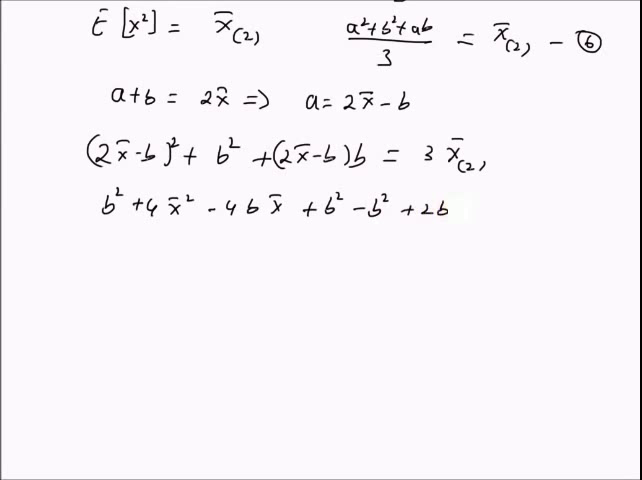 E[x²] = x̄₍₂₎ (a²+b²+ab)/3 = x̄₍₂₎ - ⑥
a+b = 2x̄ => a = 2x̄ - b
(2x̄-b)² + b² + (2x̄-b)b = 3 x̄₍₂₎
b² + 4x̄² - 4bx̄ + b² - b² + 2b